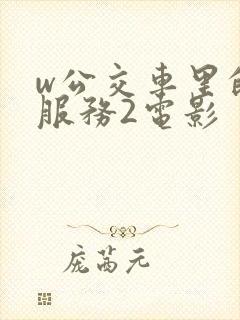 w公交车里的
服務2電影
庞茜元